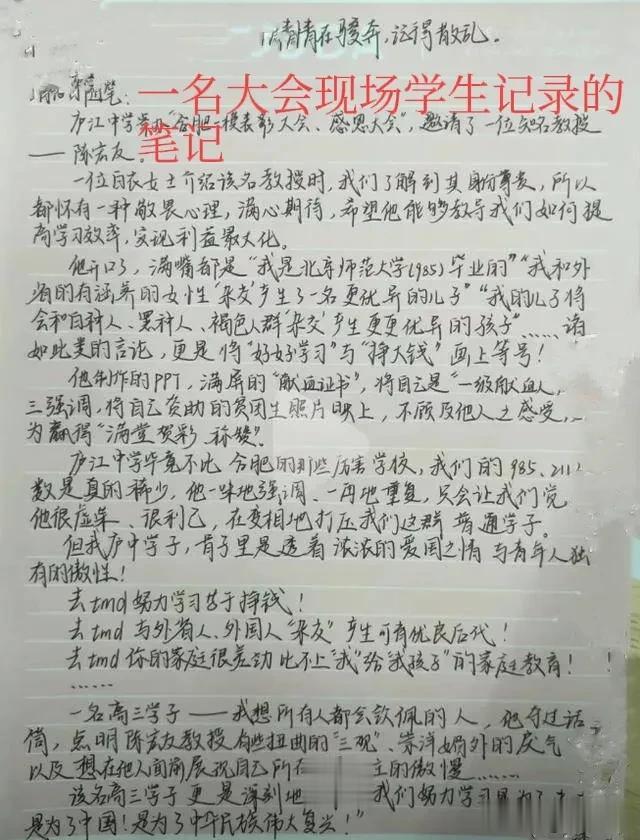 情在骏奔,记得散乱。
一名大会现场学生记录的
笔记
庐江中学举办“合肥一模表彰大会、感恩大会”,邀请了一位知名教授
——陈宏友.
一位白衣女士介绍该名教授时,我们了解到其身份尊贵,所以
都怀有一种敬畏心理,满心期待,希望他能够教导我们如何提
高学习效率,实现利益最大化。
他开口了,满嘴都是“我是北京师范大学(985)毕业的”“我和外
省的有涵养的女性‘杂交’产生了一名更优异的儿子”“我的儿子将
会和白种人、黑种人、褐色人群‘杂交’产生更更优异的孩子”……诸
如此类的言论,更是将“好好学习”与“挣大钱”画上等号!
他制作的PPT,满屏的“献血证书”,将自己是“一级献血人”
三强调,将自己资助的贫困生照片映上,不顾及他人之感受,
为赢得“满堂贺彩 称赞”.
庐江中学毕竟不比合肥的那些厉害学校,我们的985、211
数是真的稀少,他一味地强调、一再地重复,只会让我们觉
他很虚荣、很利己,在变相地打压我们这群普通学子。
但我庐中学子,骨子里是透着浓浓的爱国之情与青年人独
有的傲性!
去tmd努力学习等于挣钱!
去tmd与外省人、外国人“杂交”产生可有优良后代!
去tmd你的家庭很差劲比不上“我”给“我孩子”的家庭教育!
……
一名高三学子——我想所有人都会钦佩的人,他夺过话
筒,点明陈宏友教授有些扭曲的“三观”、崇洋媚外的戾气
以及想在他人面前展现自己所在 主的傲慢……
该名高三学子更是深刻地 我们努力学习是为了
是为了中国!是为了中华民族伟大复兴!”